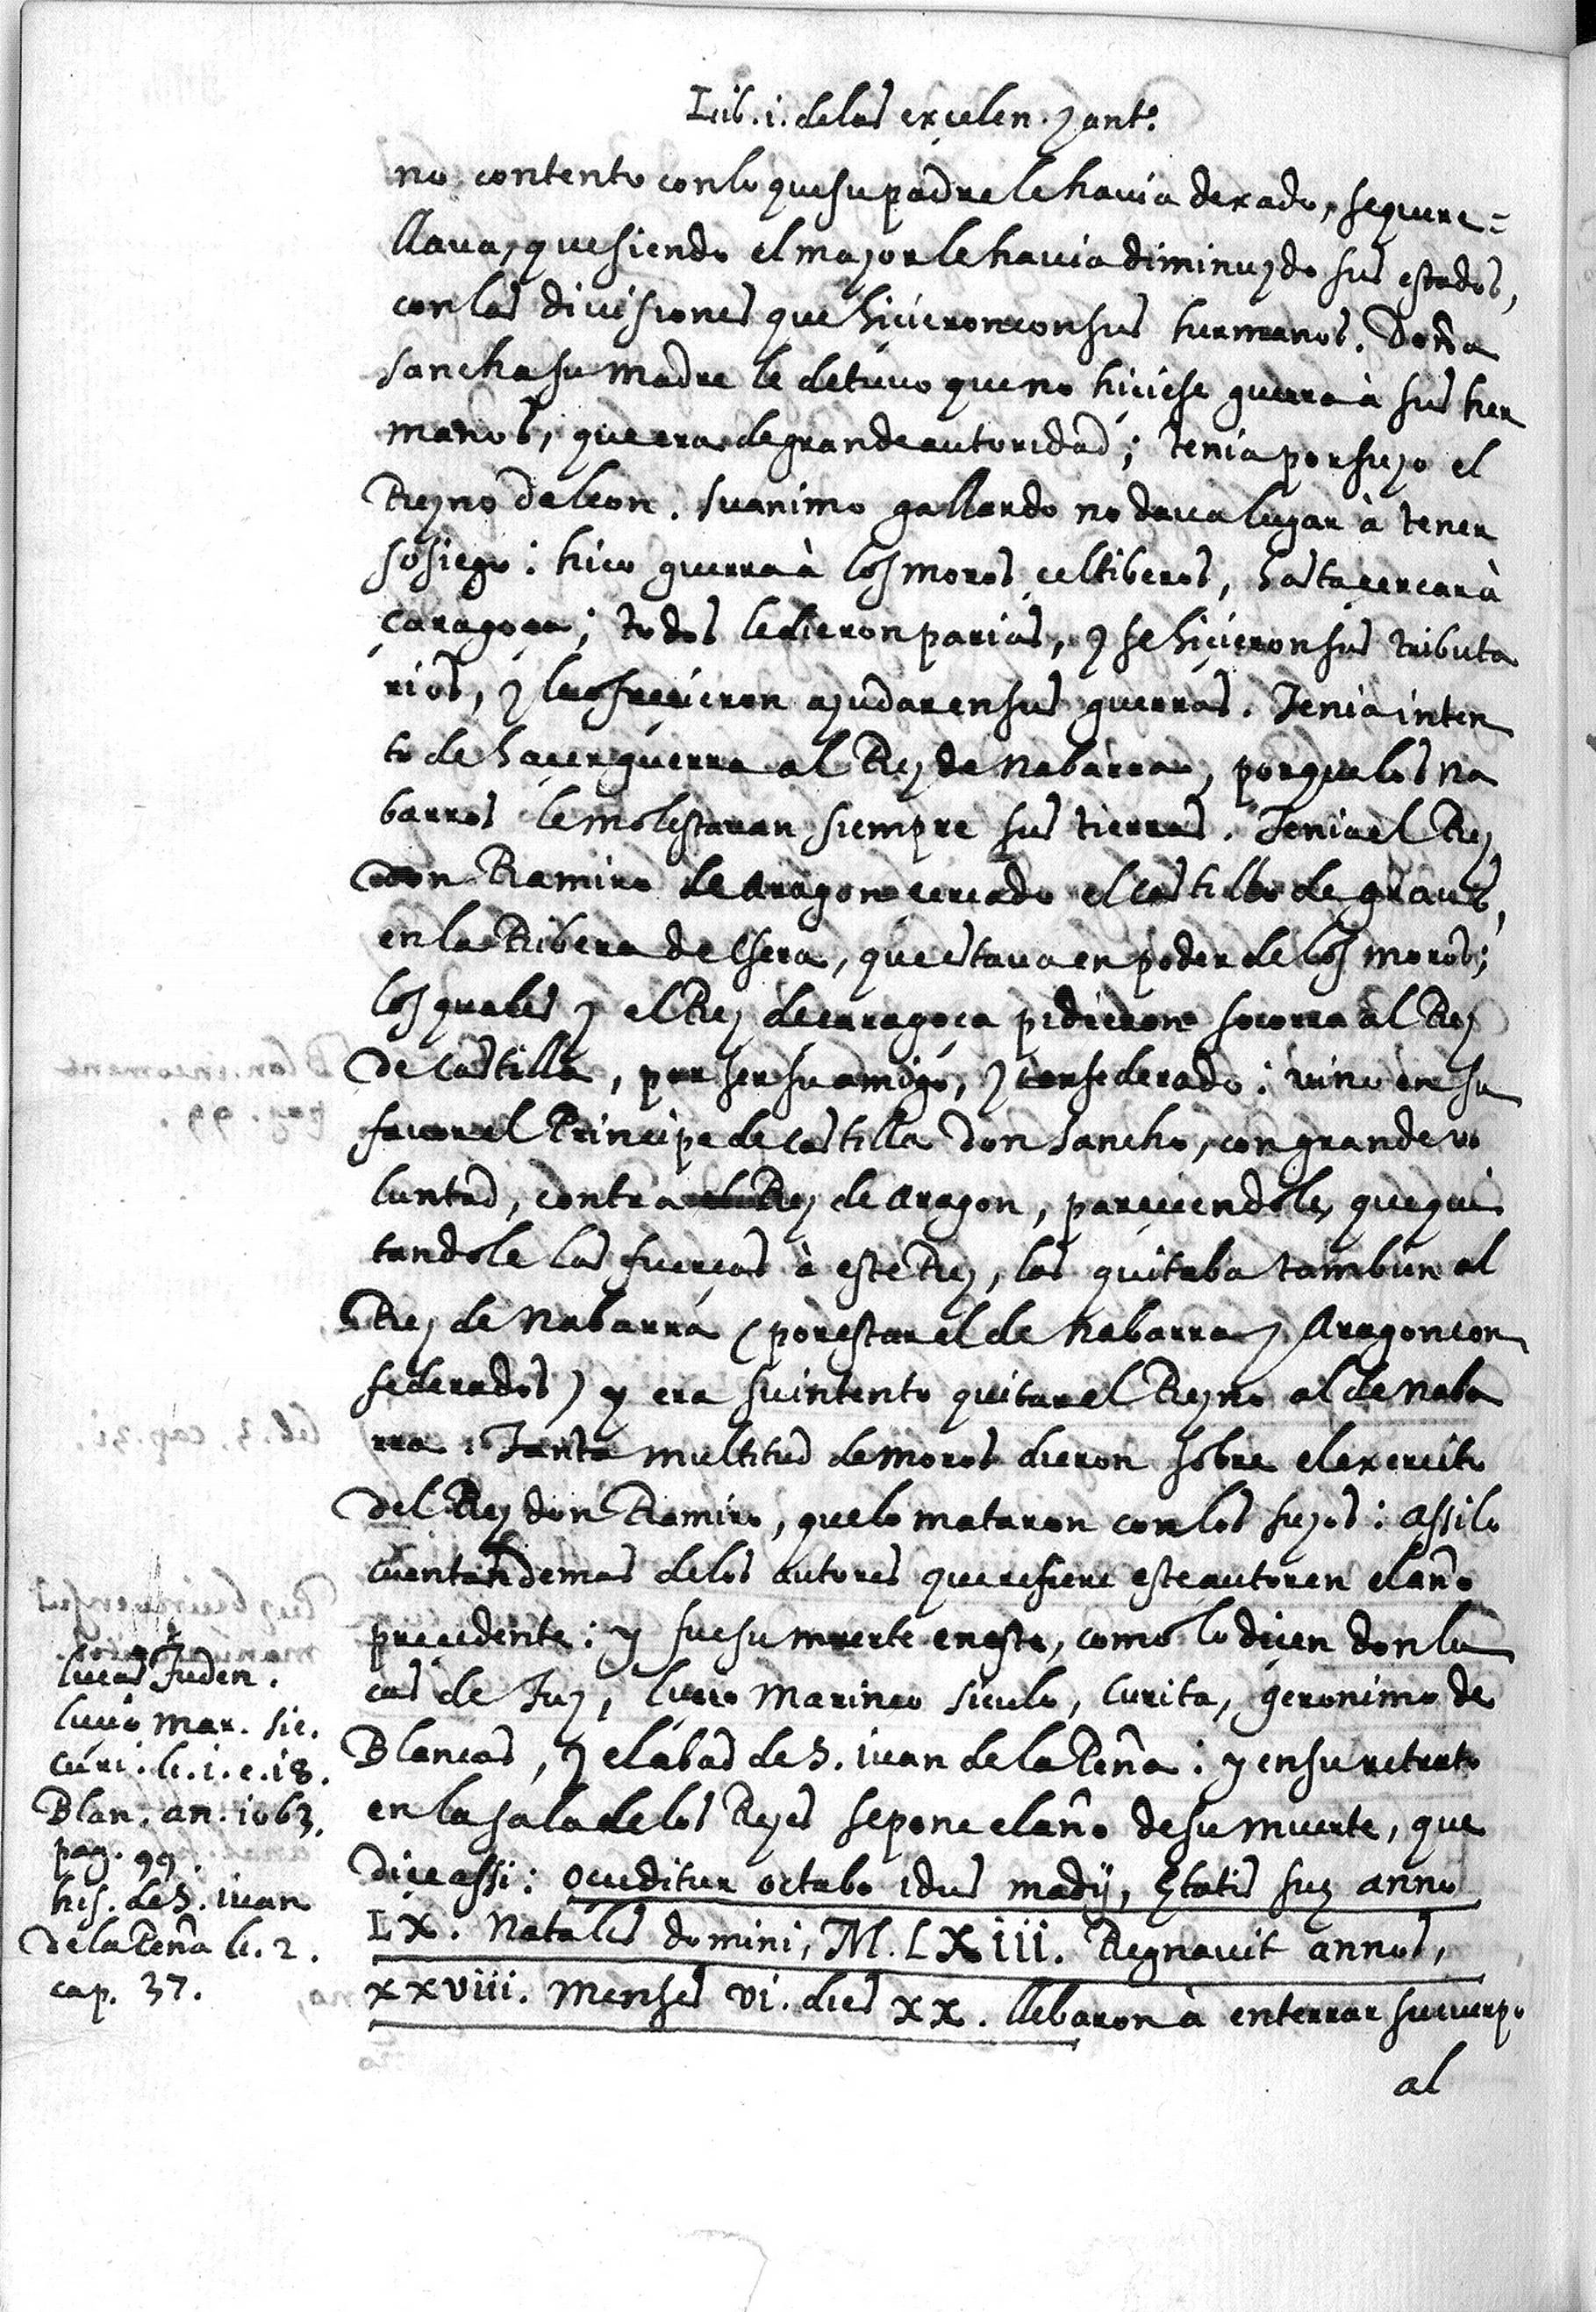 Lib. i. de las exçelen. y antº.
no contento con lo que su padre le havia dexado, se quere=
llava, que siendo el mayor le havia diminuydo sus estados,
con las divisiones que hiçieron con sus hermanos. Doña
Sancha su madre le detuvo que no hiçiese guerra à sus her
manos, que era de grande autoridad; tenia por suyo el
Reyno de leon. su animo gallardo no dava lugar à tener
sosiego: hiço guerra à los moros çeltiberos, hasta çercar à
çaragoça; todos le dieron parias, y se hiçieron sus tributa
rios, y le ofreçieron ayudar en sus guerras. Tenia inten
to de haçer guerra al Rey de Nabarra, porque los na
barros le molestavan siempre sus tierras. Tenia el Rey
don Ramiro de Aragon çercado el castillo de graus,
en la Ribera de Esera, que estava en poder de los moros;
los quales y el Rey de çaragoça pidieron socorro al Rey
de Castilla, por ser su amigo, y confederado: vino en su
favor el Prinçipe de Castilla Don Sancho, con grande vo
luntad, contra el Rey de Aragon, pareçiendole, que qui
tandole las fuerças à este Rey, las quitaba tambien al
Rey de Nabarra (por estar el de Nabarra y Aragon con
federados) y era su intento quitar el Reyno al de Naba
rra. Tanta multitud de moros dieron sobre el exerçito
del Rey don Ramiro, que lo mataron con los suyos: assi lo
cuentan demas de los autores que refiere este autor en el año
preçedente: y fue su muerte en este, como lo diçen don lu
cas de Tuy, luçio Marineo siculo, Çurita, geronimo de
Blancas, y el abad de S. iuan de la Peña: y en su retrato
en la sala de los Reyes se pone el año de su muerte, que
diçe assi: Occiditur octabo idus madij, Ętatis suę anno
LX. Natalis domini, M. LXiii. Regnavit annos,
xxviii. Menses vi. dies xx. llebaron à enterrar su cuerpo
al
lucas Tuden.
luçio mar. sic.
Çuri. li. i. c. i8.
Blan. an. 1063.
pag. 99.
his. de S. iuan
de la Peña li. 2.
cap. 37.